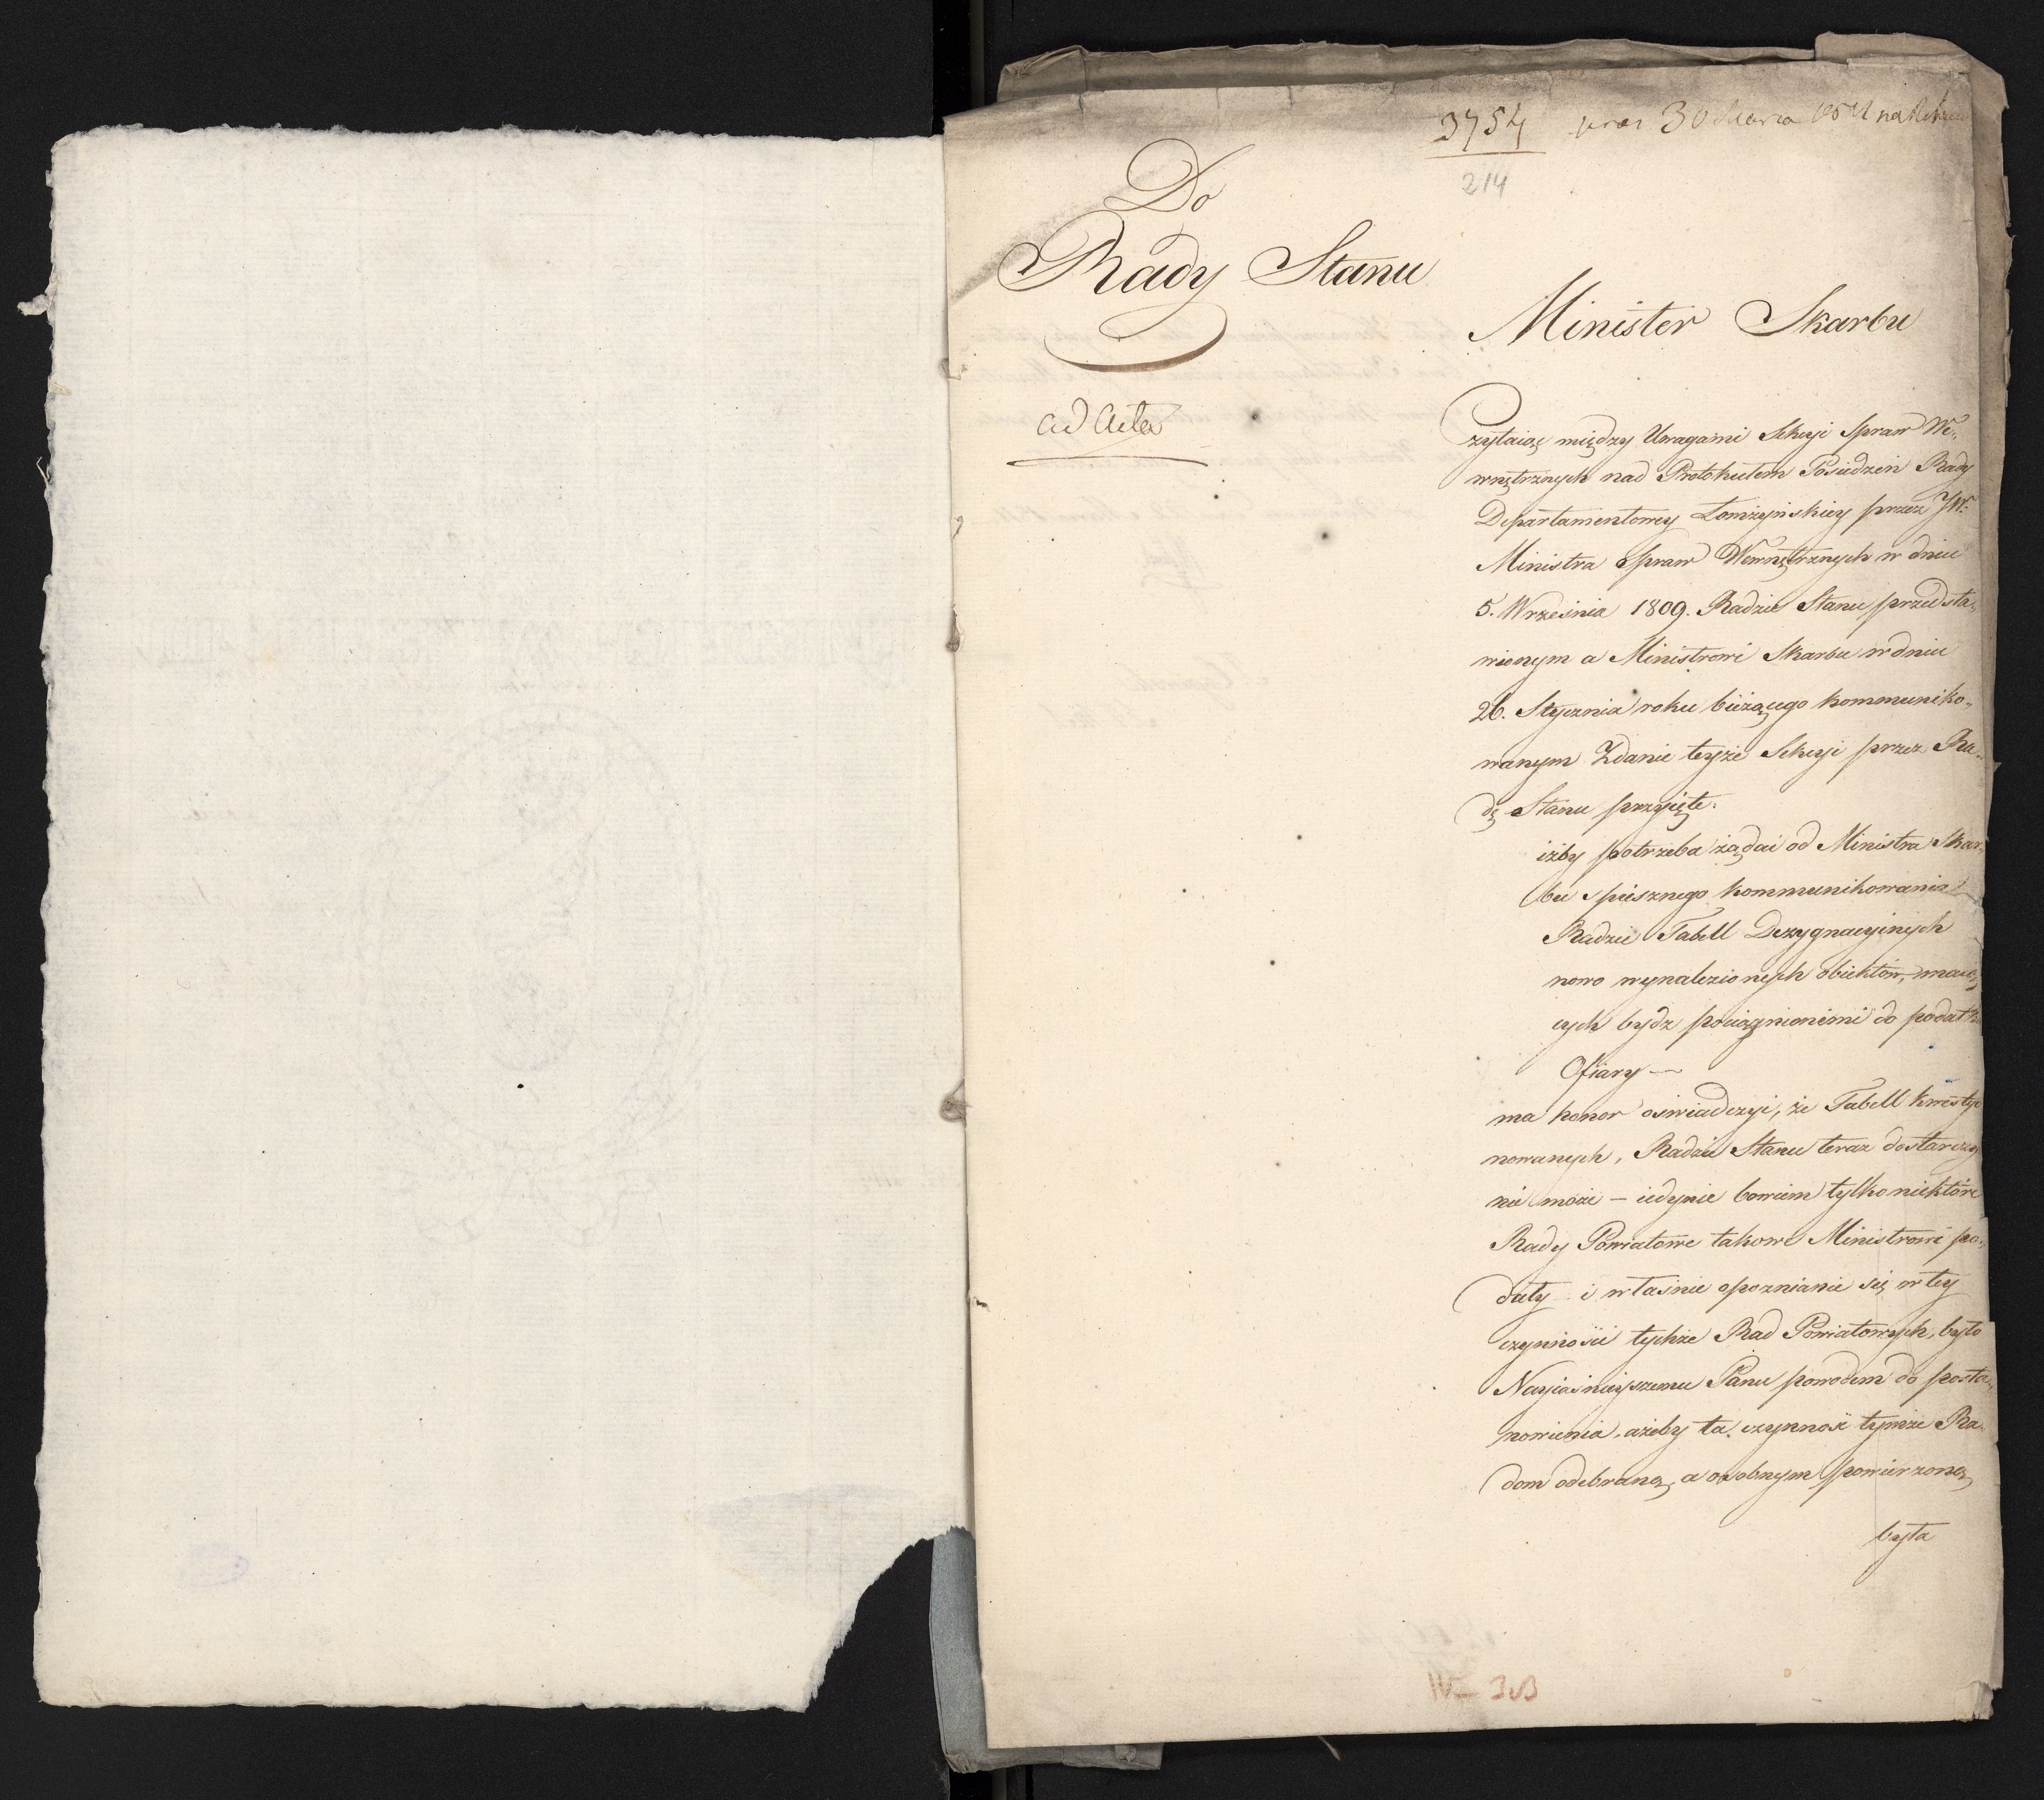 3754
30 Marca
214
Do
Rady Stanu
ad acta
Minister Skarbu
Czytaiąc między Uwagami Sekcyi Spraw We„
wnętrznych nad Protokułem Posiedzeń Rady
Departamentowey Łomżyńskiey przez JW.
Ministra Spraw Wewnętrznych w dniu
5. Września 1809. Radzie Stanu przedsta„
wionym a Ministrowi Skarbu w dniu
26. Stycznia roku bieżącego kommuniko„
wanym Zdanie teyże Sekcyi przez Ra„
dę Stanu przyięte:
iżby potrzeba żądać od Ministra Skar„
bu spiesznego kommunikowania
Radzie Tabell Dezygnacyinych
nowo wynalezionych obiektów, maią„
cych bydź pociągnionemi do podatku
Ofiary —
ma honor oświadczyć, że Tabell kwestyo
nowanych, Radzie Stanu teraz dostarczyć
nie może — iedynie bowiem tylko niektóre
Rady Powiatowe takowe Ministrowi po„
dały i właśnie opoznianie się w tey
czynności tychże Rad Powiatowych, było
Nayiaśnieyszemu Panu powodem do posta„
nowienia, ażeby ta czynność tymże Ra„
dom odebraną, a osobnym powierzoną
była